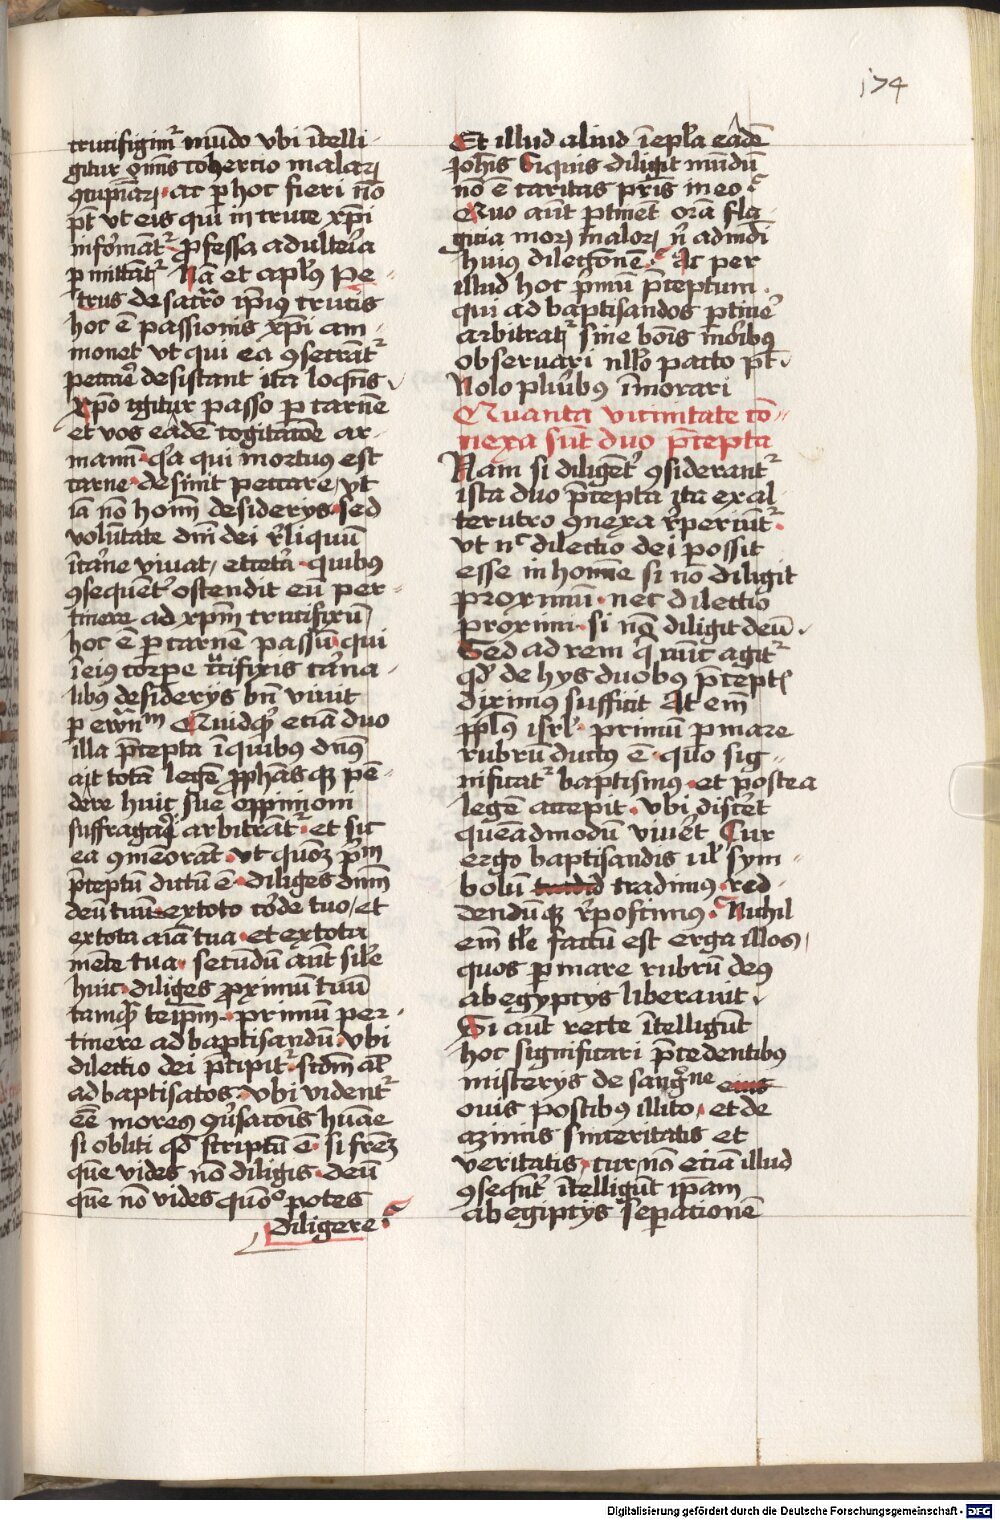 174
crucifigim᷑ mūdo vbi ītelli
gitur om̄is cohercio malaꝝ
ꝯcupiāꝝ · ac ꝑ hoc fieri nō
pt̄ vt eis qui in cruce xp̄i
informāt᷑ ꝓfessa adultēia
ꝑmittāt᷑ Nā et apl̄us Pe
trus de sacrō ip̄ius crucis
hoc ē passionis xp̄i am
monet vt qui ea ꝯsecrāt᷑
peccāe desistant ita loqn̄s
Xp̄o igitur passo ꝑ carnē
et vos eādē cogitacōe ar
mam̄i · qͥa qui mortuus est
carne · desinit peccare / vt
iā nō hoīm desiderys · sed
volūtate dm̄ dei rl̄iquū
ī carne viuat / et ceta · quibus
ꝯsequent᷑ ostendit eū per
tinere ad xp̄m crucifixū
hoc ē ꝑ carnē passū · qui
ī eius corpe cͥcifixis carna
libus desiderys bn̄ viuit
ꝑ ewn̄ᵐ Quidqꝫ eciā duo
illa p̄cepta ī quibus dn̄s
ait totā legē ꝓphāsqꝫ pē
dere huic sue oppiniom
suffragāi arbitrāt᷑ · et sic
ea ꝯmēorāt · vt quōꝫ pͥmᵐ
p̄ceptū dictū ē · diliges dnm̄
deū tuū ex toto corde tuo / et
ex tota aīa tua · et ex tota
mēte tua · secundū aūt sil̄e
huic · diliges ꝓximū tuū
tamqꝫ teip̄m · primū per
tinere ad baptisandū · vbi
dilectio dei p̄cipit᷑ · scdm̄ al̄
ad baptisatos · vbi vident᷑
eē mores ꝯūsacōis huāe
si obliti qd̄ scriptū ē · si frēꝫ
quē vides nō diligis · deū
quē nō vides quōº potes
diligere ·
Et illud aliud ī epl̄a eādē
Joh̄is Siquis diligit mūdū
nō ē caritas pr̄is in eo ·
Quo aūt ꝑtinēt orā fla
gicia moꝝ maloꝝ nͥ admdī
huius dilecgōne · Ac per
illud hoc pͥmū p̄ceptum
qui ad baptisandos ꝑtinē
arbitrat᷑ sine bōis moribus
obseruari nll̄o pacto pt̄
Nolo pluͥbus īmorari
Quanta vicinitate cō
nexa sūt duo p̄cepta
Nam si diligēt᷑ ꝯsiderant᷑
ista duo p̄cepta ita ex al
terutro ꝯnexa rꝑeriūt᷑
vt nͨ dilectio dei possit
esse in homīe si nō diligit
proximū · nec dilectio
proximi · si nō diligit deū
Sed ad rem q̄ nūc agit᷑
qd̄ de hys duobus p̄cept̄
diximus sufficit At em̄
ppl̄s isrl̄ primū ꝑ mare
rubrū ductus ē · quo sig
nificat᷑ baptismus · et postea
legē accepit · vbi discēt
quēadmodū viuēt Cur
ergo baptisandis ul̄ sym
bolū tradimus · red
dendūqꝫ rꝑoscimus · Nichil
em̄ tl̄e factū est erga illos
quos ꝑ mare rubrū deus
ab egyptys liberauit
Si aūt recte ītelligūt
hoc significari p̄cedentibus
misterys de sangͥne eius
ouis postibus illito · et de
azimis sinceritatis et
veritatis · cur nō eciā illud
ꝯseqn̄t ītelligūt ip̄am
ab egiptys seꝑationē
Digitalisierung gefördert durch die Deutsche Forschungsgemeinschaft - DFG